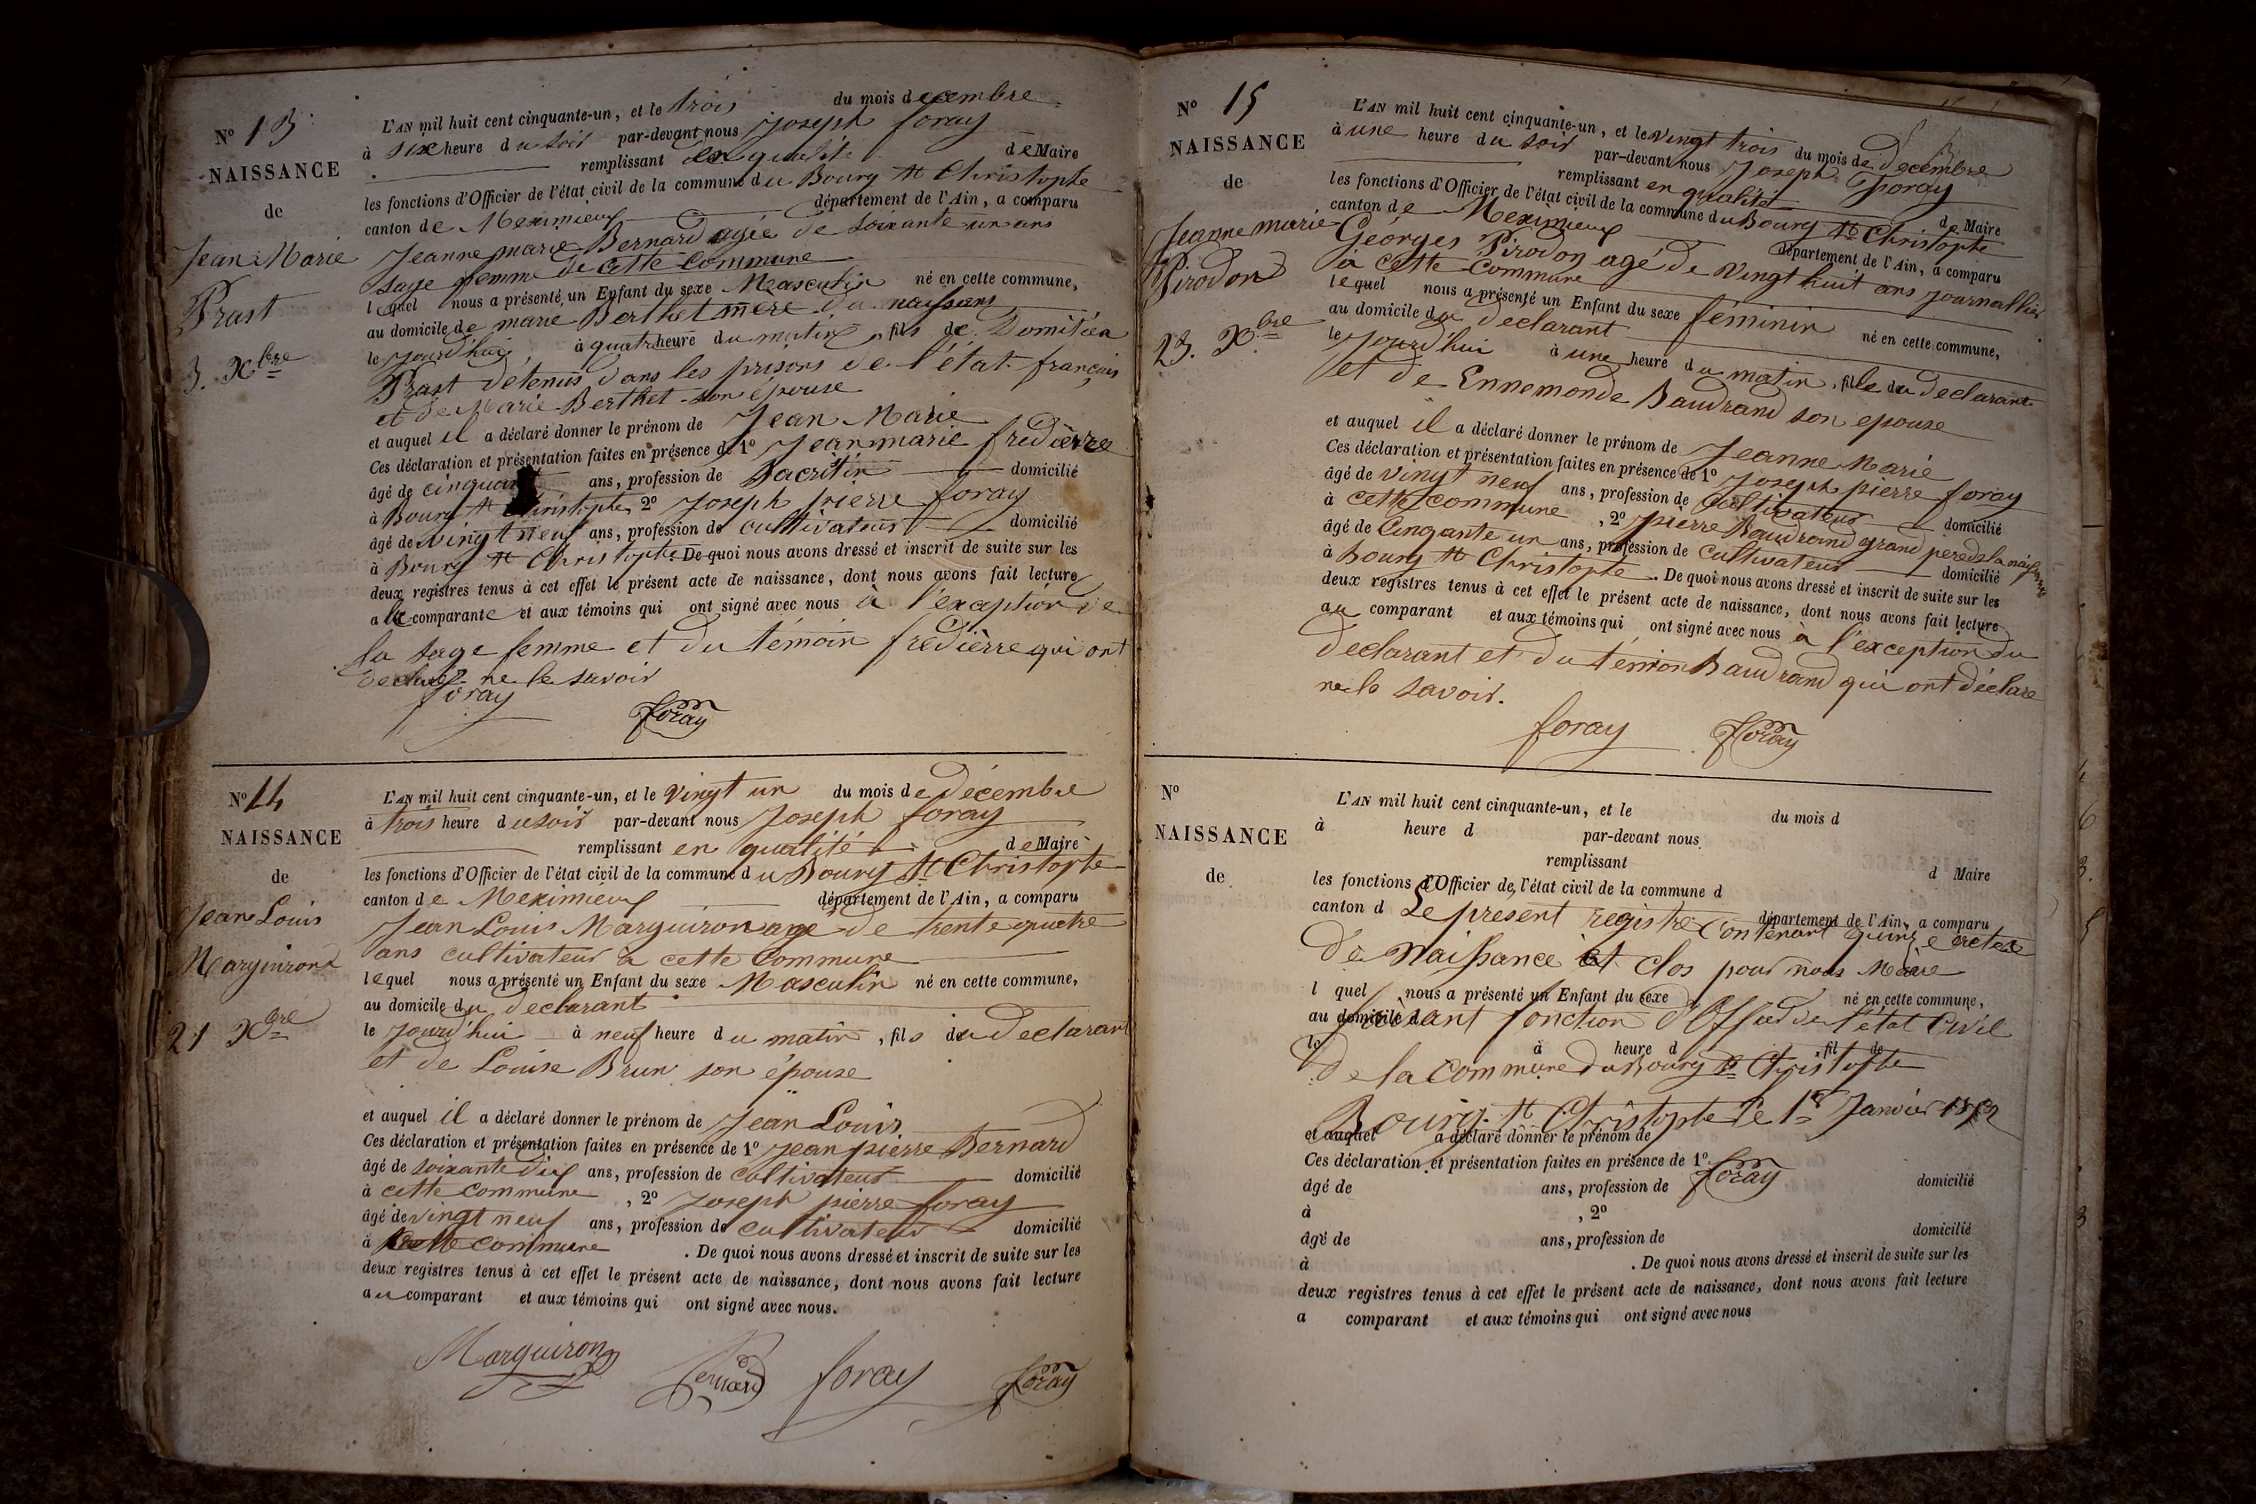 N° 13
NAISSANCE
de
Jean Marie
Prast
3. Xbre
L'AN mil huit cent cinquante-un, et le trois du mois decembre
à six heure du soir par-devant nous Joseph foray
remplissant en qualité de Maire
les fonctions d'Officier de l'état civil de la commune du Bourg St Christophe
canton de Meximieux département de l'Ain, a comparu
Jeanne marie Bernard agée de soixante un ans
sage femme de cette commune
lequel nous a présenté un Enfant du sexe Masculin né en cette commune,
au domicile de marie Berthet mere du naissans
le jourd'hui à quatr heure du matin, fils de Domitien
Prast detenus dans les prisons de l'état français
et de Marie Berthet son épouse
et auquel il a déclaré donner le prénom de Jean Marie
Ces déclaration et présentation faites en présence de 1° Jean marie fredière
âgé de cinquan ans, profession de Sacritin domicilié
à Bourg St Christophe, 2° Joseph pierre foray
âgé de vingt neuf ans, profession de cultivateur domicilié
à Bourg St Christophe. De quoi nous avons dressé et inscrit de suite sur les
deux registres tenus à cet effet le présent acte de naissance, dont nous avons fait lecture
a la comparante et aux témoins qui ont signé avec nous à l'exception de
la sage femme et du témoin fredière qui ont
déclaré ne le savoir
foray foray
N° 14
NAISSANCE
de
Jean Louis
Marguiron
21 Xbre
L'AN mil huit cent cinquante-un, et le vingt un du mois de décembre
à trois heure du soir par-devant nous Joseph foray
remplissant en qualité de Maire
les fonctions d'Officier de l'état civil de la commune du Bourg St Christophe
canton de Meximieux département de l'Ain, a comparu
Jean Louis Marguiron age de trente quatre
ans cultivateur à cette commune
lequel nous a présenté un Enfant du sexe Masculin né en cette commune,
au domicile du declarant
le jourd'hui à neuf heure du matin, fils du declarant
et de Louise Brun son épouse
et auquel il a déclaré donner le prénom de Jean Louis
Ces déclaration et présentation faites en présence de 1° Jean pierre Bernard
âgé de soixante dix ans, profession de cultivateur domicilié
à cette commune, 2° Joseph pierre foray
âgé de vingt neuf ans, profession de cultivateur domicilié
à cette commune. De quoi nous avons dressé et inscrit de suite sur les
deux registres tenus à cet effet le présent acte de naissance, dont nous avons fait lecture
au comparant et aux témoins qui ont signé avec nous.
Marguiron Bernard foray foray
N° 15
NAISSANCE
de
Jeanne marie
Pirodon
23. Xbre
L'AN mil huit cent cinquante-un, et le vingt trois du mois de decembre
à une heure du soir par-devant nous Joseph foray
remplissant en qualité de Maire
les fonctions d'Officier de l'état civil de la commune du Bourg St Christophe
canton de Meximieux département de l'Ain, a comparu
Géorges Pirodon agé de vingt huit ans journallier
à cette commune
lequel nous a présenté un Enfant du sexe féminin né en cette commune,
au domicile du declarant
le jourd'hui à une heure du matin, fille du declarant
et de Ennemonde Baudrand son epouse
et auquel il a déclaré donner le prénom de Jeanne Marie
Ces déclaration et présentation faites en présence de 1° Joseph pierre foray
âgé de vingt neuf ans, profession de cultivateur domicilié
à cette commune, 2° pierre Baudrand grand pere de la naissance
âgé de Cinqante un ans, profession de cultivateur domicilié
à Bourg St Christophe. De quoi nous avons dressé et inscrit de suite sur les
deux registres tenus à cet effet le présent acte de naissance, dont nous avons fait lecture
au comparant et aux témoins qui ont signé avec nous à l'exception du
déclarant et du témion Baudrand qui ont déclare
ne le savoir.
foray foray
N°
NAISSANCE
de
L'AN mil huit cent cinquante-un, et le du mois d
à heure d par-devant nous
remplissant d Maire
les fonctions d'Officier de l'état civil de la commune d
canton d département de l'Ain, a comparu
Le présent registre contenant quinze actes
De Naissance et clos pour nous Maire
l quel nous a présenté un Enfant du sexe né en cette commune,
au domicile d
faisant fonction d' de l'état Civil
le à heure d, fil de
de la Commune du Bourg St Christophe
Bourg St Christophe le 1er Janvier 1852
et auquel a déclaré donner le prénom de
Ces déclaration et présentation faites en présence de 1°
foray
âgé de ans, profession de domicilié
à, 2°
âgé de ans, profession de domicilié
à. De quoi nous avons dressé et inscrit de suite sur les
deux registres tenus à cet effet le présent acte de naissance, dont nous avons fait lecture
a comparant et aux témoins qui ont signé avec nous